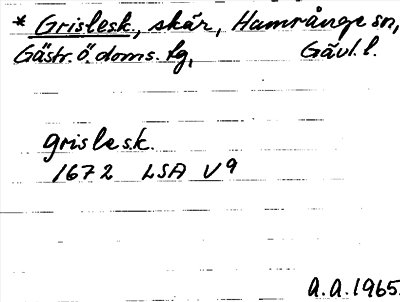 * Grislesk., skär, Hamrånge sn,
Gästr. ö. doms. lg, Gävl. l.
grislesk.
1672 LSA V9
A.A. 1965.